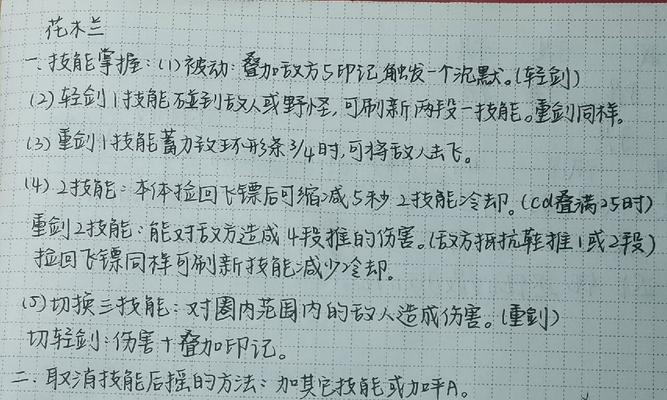 花木兰
一、技能掌握：(1)被动：叠加敌方5印记触发一个沉默。(轻剑)
(2)轻剑1技能碰到敌人或野怪，可刷新两段一技能。重剑同样。
(3)重剑1技能蓄力致环形条3/4时，可将敌人击飞。
(4)2技能：本体捡回飞镖后可缩减5秒2技能冷却。(cd叠满25时)
重剑2技能：能对敌方造成4段推的伤害。(敌方抵抗鞋推1或2段)
捡回飞镖同样可刷新技能减少冷却。
(5)切换三技能：对圈内范围内的敌人造成伤害。(重剑)
切轻剑：伤害+叠加印记。
二、取消技能后摇的方法：加其它技能或加平A。